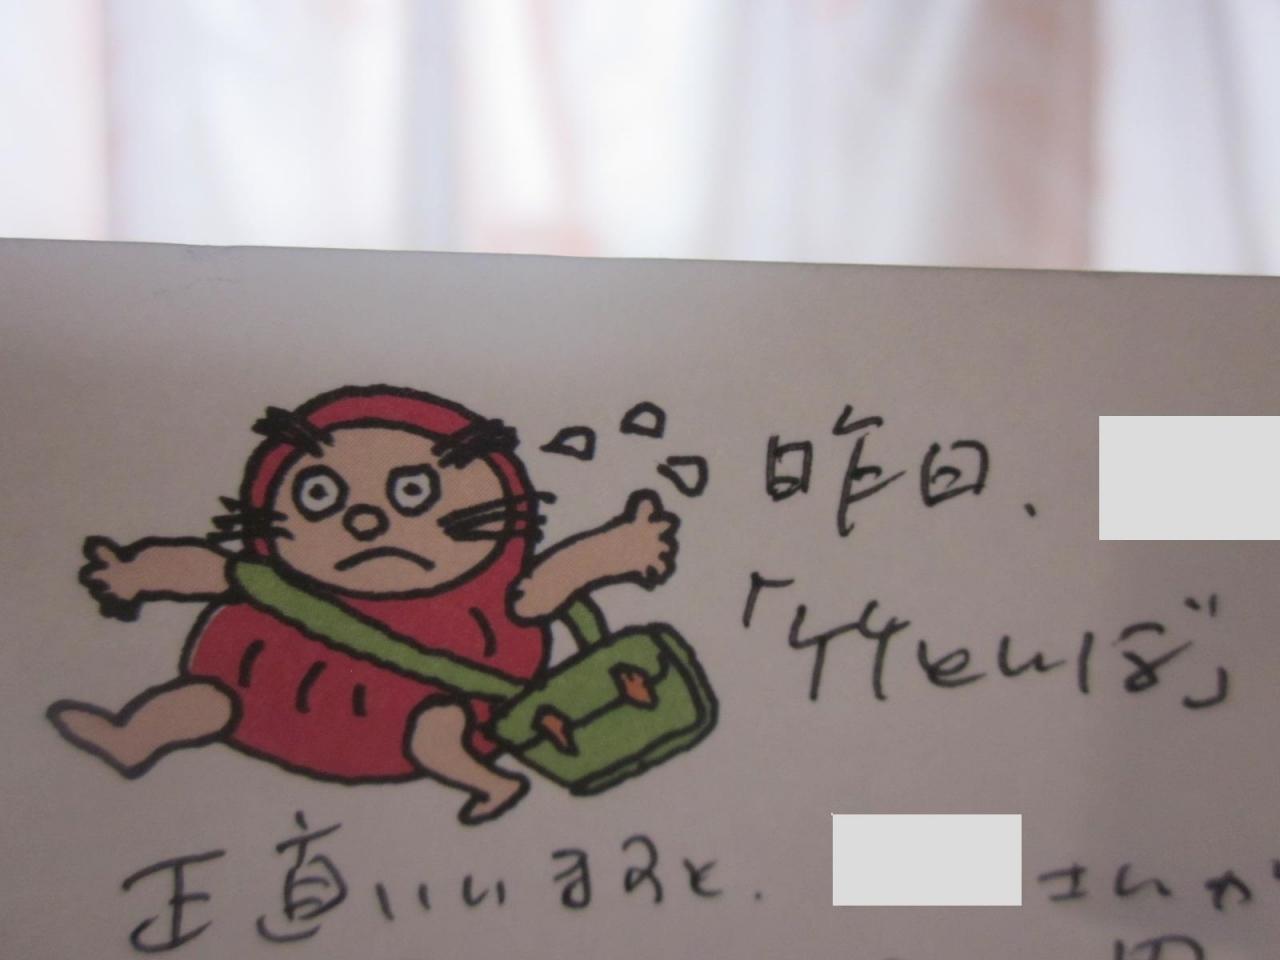 昨日、
「竹とんぼ」
正直いいますと、
さんが